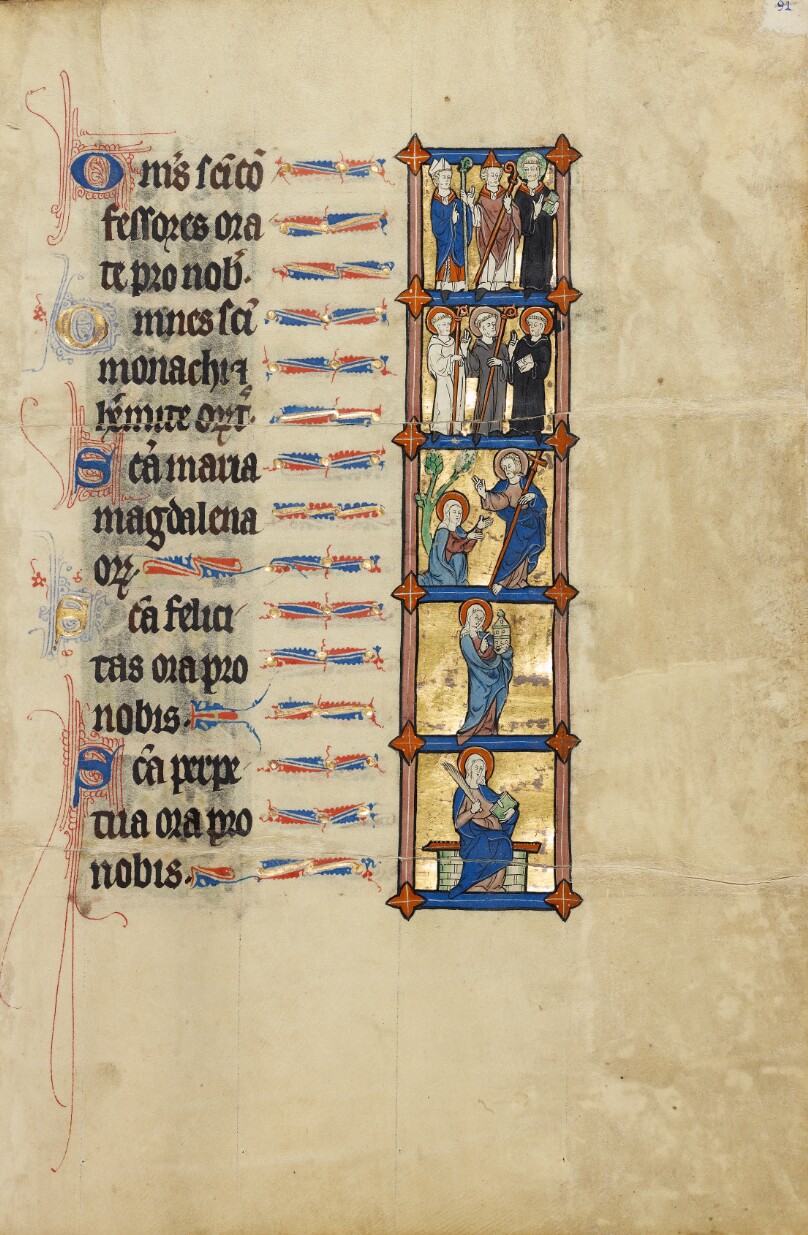 91
Om̄s scī cō
fessores ora
te pro nob̄.
Omnes scī
monachi ⁊
h̄emite or̄t.
Scā maria
magdalena
orꝝ.
Scā felici
tas ora pro
nobis.
Scā perpe
tua ora pro
nobis.